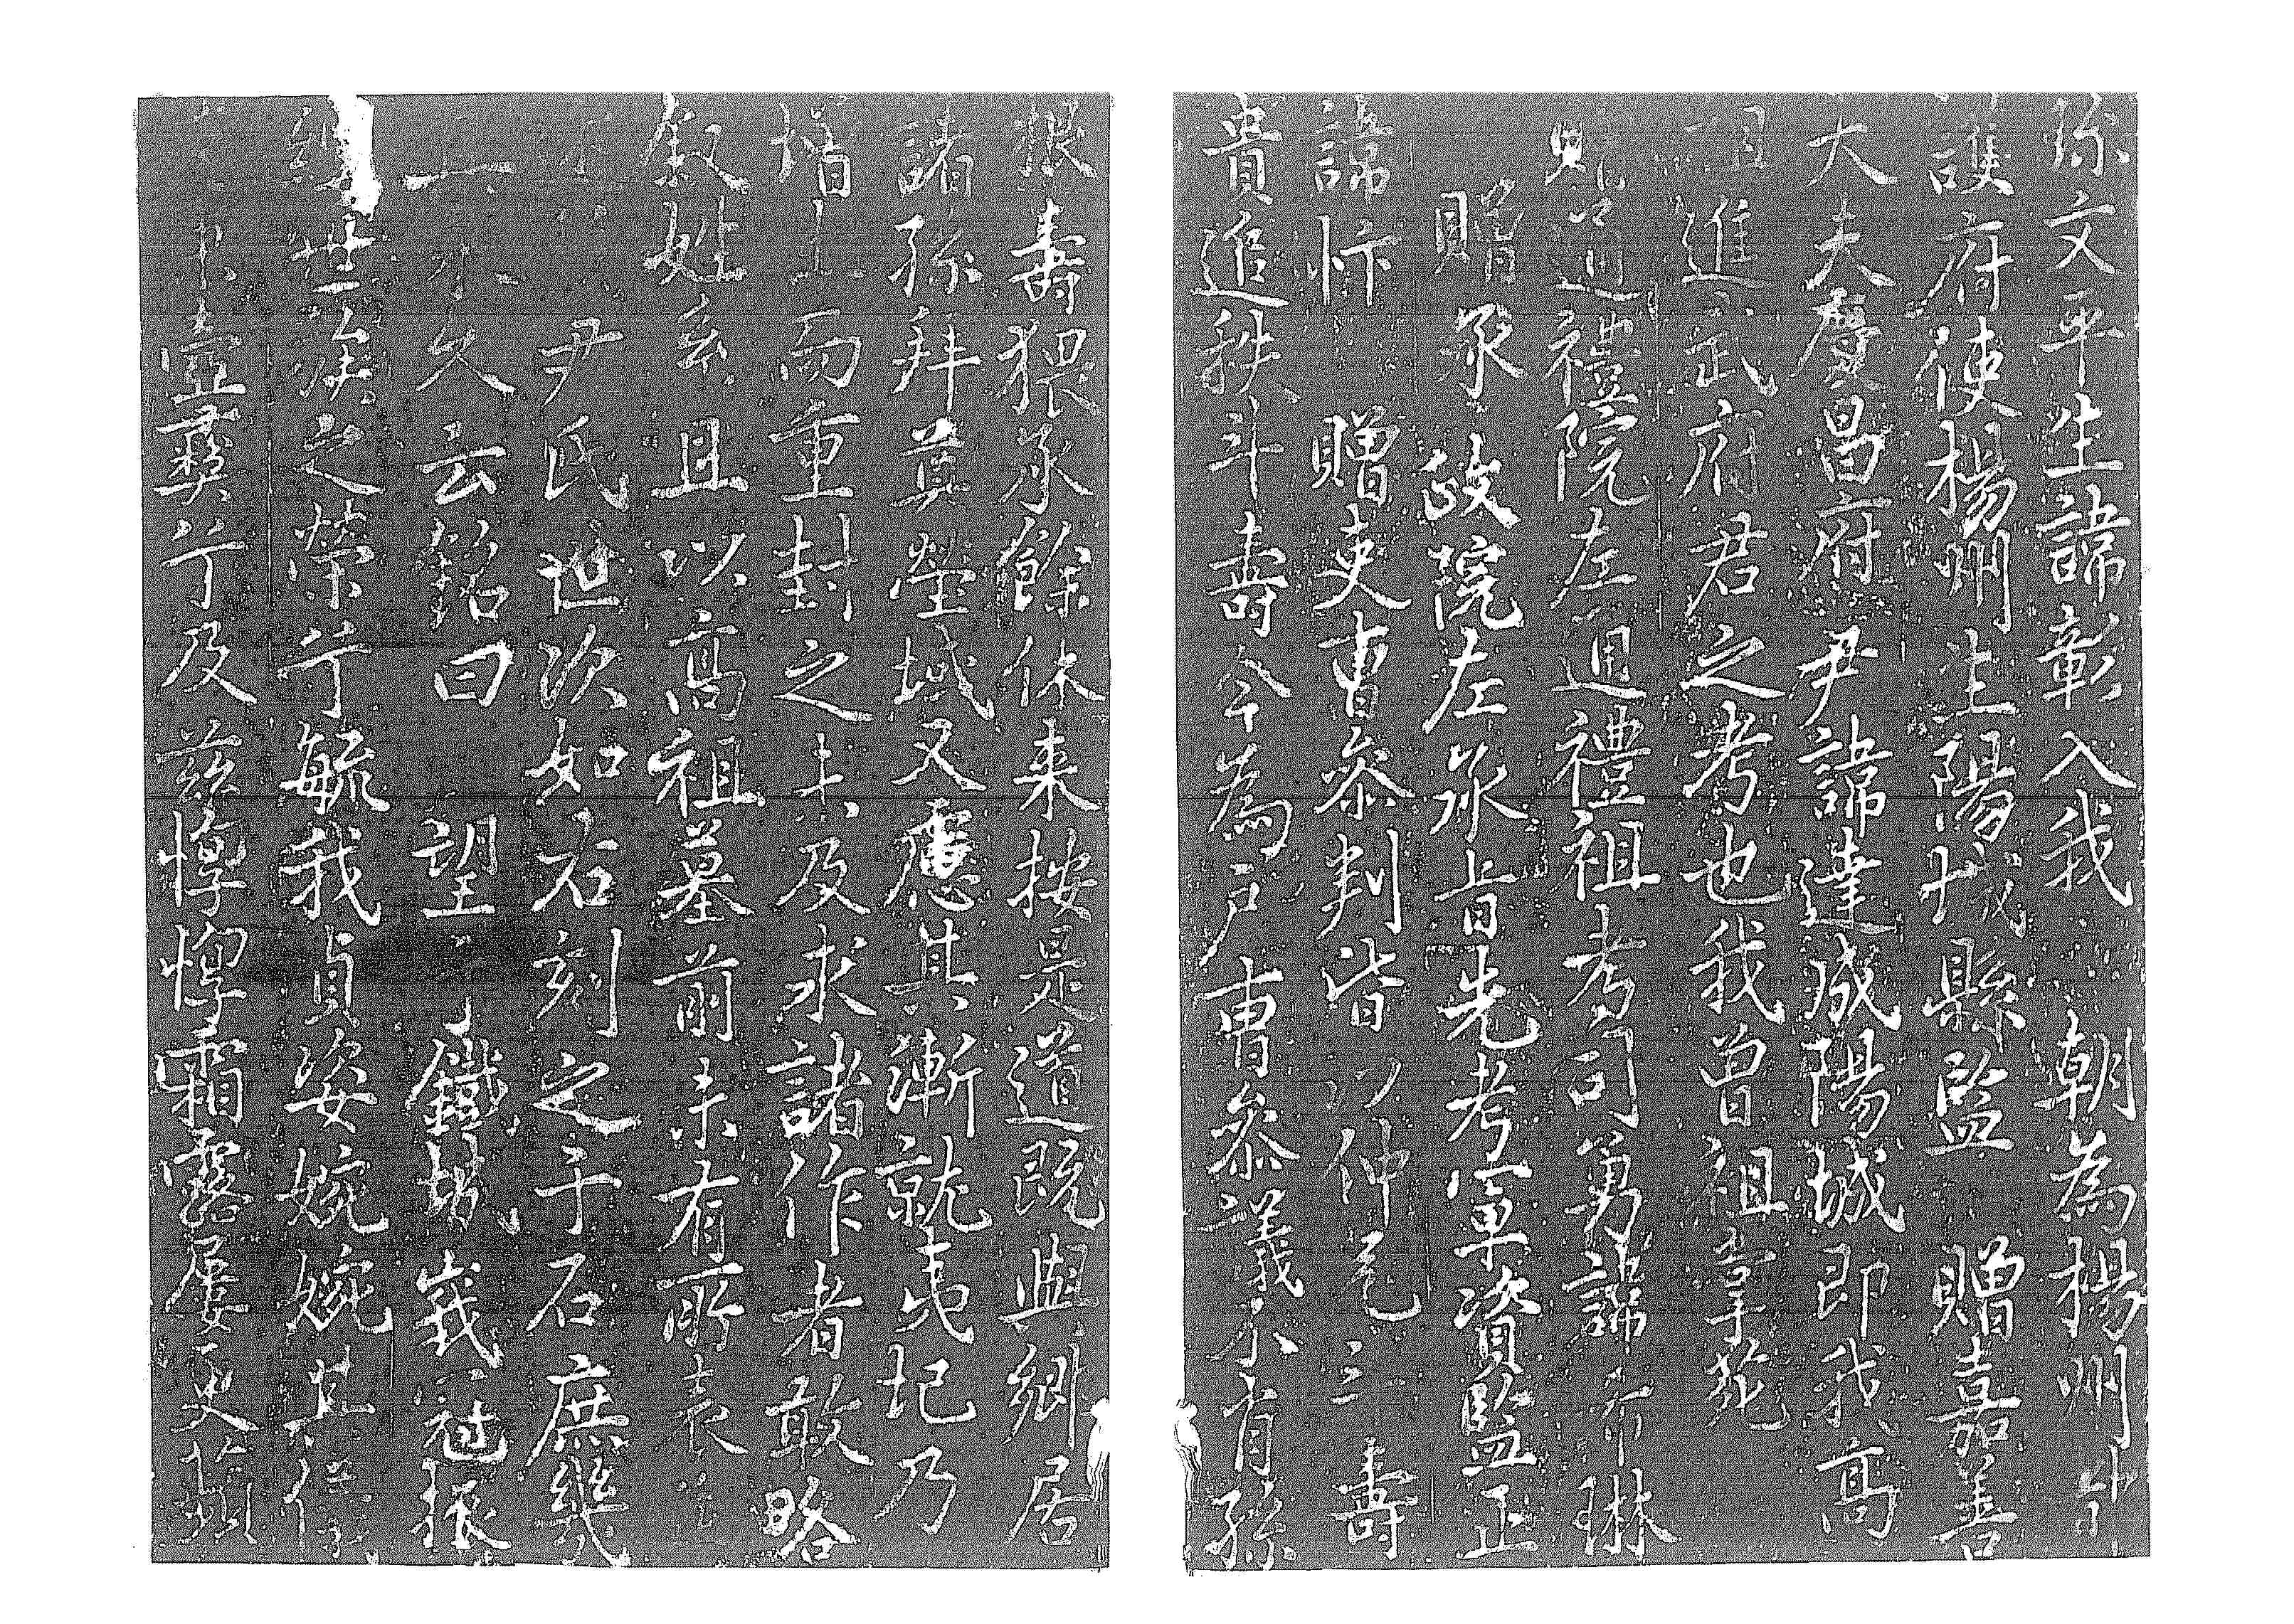 孫文平生諱彰入我 朝為楊州
護府使楊州生陽城縣監 贈嘉善
大夫慶昌府尹諱達成陽城即我高
祖進武府君之考也我曾祖掌苑
貽 通禮院左通禮祖考司勇諱希琳
贈承政院左承旨先考軍資監正
諱忭 贈吏曹參判皆以仲兄 壽
貴進秩斗壽今為戶曹參議小有孫
根壽猥承餘休来按是道既與鄉居
諸孫拜奠塋域又慮其漸就夷圮乃
增土而重封之未及求諸作者敢略
敘姓系且以高祖墓前未有所表
尹氏世次如右刻之于石庶幾
久云銘曰 望 鐵城峩冠
世族之榮亏毓我貞姿婉婉其
壼彛亏及茲惸惸霜露屢更